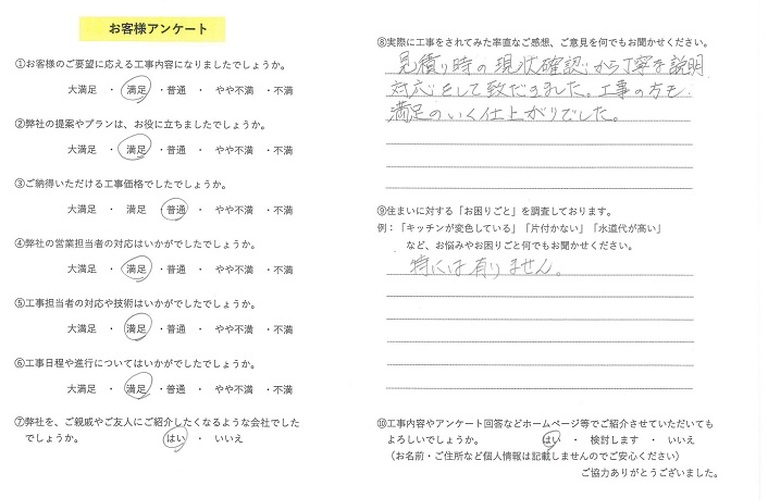 お客様アンケート
①お客様のご要望に応える工事内容になりましたでしょうか。
大満足 ・ 満足 ・普通 ・ やや不満 ・不満
②弊社の提案やプランは、お役に立ちましたでしょうか。
大満足 ・ 満足 ・普通 ・ やや不満 ・不満
③ご納得いただける工事価格でしたでしょうか。
大満足 ・ 満足 ・普通 ・ やや不満 ・不満
④弊社の営業担当者の対応はいかがでしたでしょうか。
大満足 ・ 満足 ・普通 ・ やや不満 ・不満
⑤工事担当者の対応や技術はいかがでしたでしょうか。
大満足 ・ 満足 ・普通 ・ やや不満 ・不満
⑥工事日程や進行についてはいかがでしたでしょうか。
大満足 ・ 満足 ・普通 ・ やや不満 ・不満
⑦弊社を、ご親戚やご友人にご紹介したくなるような会社でした
でしょうか。 はい ・ いいえ
⑧実際に工事をされてみた率直なご感想、ご意見を何でもお聞かせください。
見積り時の現状確認から丁寧な説明
対応をして致だきました。工事の方も
満足のいく仕上がりでした。
⑨住まいに対する「お困りごと」を調査しております。
例：「キッチンが変色している」「片付かない」「水道代が高い」
など、お悩みやお困りごと何でもお聞かせください。
特には有りません。
⑩工事内容やアンケート回答などホームページ等でご紹介させていただいても
よろしいでしょうか。 はい ・ 検討します ・ いいえ
（お名前・ご住所など個人情報は記載しませんのでご安心ください）
ご協力ありがとうございました。